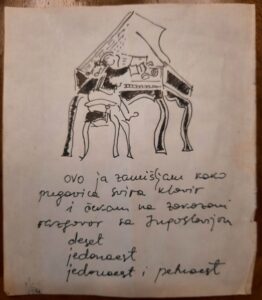 ovo ja zamišljam kako
pugovica svira klavir
i čekam na zakazani
razgovor sa Jugoslavijom
deset
jedanaest
jedanaest i petnaest